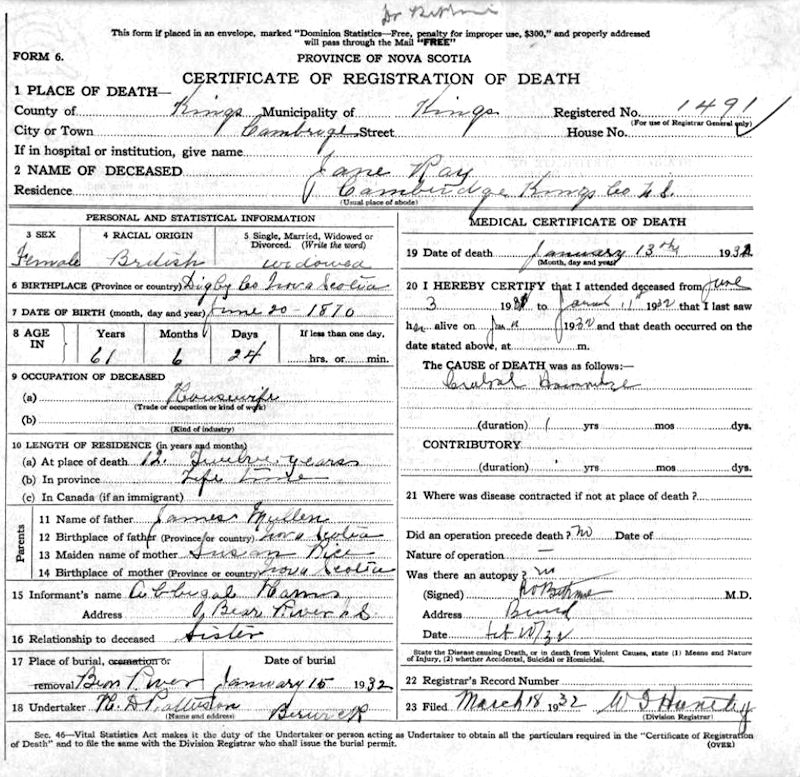 This form if placed in an envelope, marked "Dominion Statistics—Free, penalty for improper use, $300," and properly addressed
will pass through the Mail "FREE"
FORM 6.
PROVINCE OF NOVA SCOTIA
CERTIFICATE OF REGISTRATION OF DEATH
1 PLACE OF DEATH—
County of Kings Municipality of Kings Registered No. 1491
(For use of Registrar General only)
City or Town Cambrige Street House No.
If in hospital or institution, give name
2 NAME OF DECEASED Jane Ray
Residence Cambridge Kings Co N.S.
(Usual place of abode)
PERSONAL AND STATISTICAL INFORMATION
3 SEX 4 RACIAL ORIGIN 5 Single, Married, Widowed or
Divorced. (Write the word)
Female British widowed
6 BIRTHPLACE (Province or country) Digby Co Nova Scotia
7 DATE OF BIRTH (month, day and year) June 20 - 1870
8 AGE IN Years Months Days If less than one day,
61 6 24 hrs. or min.
9 OCCUPATION OF DECEASED
(a) Housewife
(Trade or occupation or kind of work)
(b)
(Kind of industry)
10 LENGTH OF RESIDENCE (in years and months)
(a) At place of death 12. Twelve years
(b) In province Life time
(c) In Canada (if an immigrant)
Parents
11 Name of father James Mullen
12 Birthplace of father (Province or country) Nova Scotia
13 Maiden name of mother Susan Rice
14 Birthplace of mother (Province or country) Nova Scotia
15 Informant's name Abbigal Harris
Address Bear River N S
16 Relationship to deceased Sister
17 Place of burial, cremation or Date of burial
removal Bear River January 15 1932
18 Undertaker Patterson Berwick
(Name and address)
MEDICAL CERTIFICATE OF DEATH
19 Date of death January 13th 1932
(Month, day and year)
20 I HEREBY CERTIFY that I attended deceased from June
3 1931 to 11 1932 that I last saw
her alive on Jan 1932 and that death occurred on the
date stated above, at m.
The CAUSE OF DEATH was as follows:—
(duration) yrs mos dys.
CONTRIBUTORY
(duration) yrs mos dys.
21 Where was disease contracted if not at place of death?
Did an operation precede death? No Date of
Nature of operation —
Was there an autopsy? No
(Signed) M.D.
Address
Date
State the Disease causing Death, or in death from Violent Causes, state (1) Means and Nature
of Injury, (2) whether Accidental, Suicidal or Homicidal.
22 Registrar's Record Number
23 Filed March 18 1932
(Division Registrar)
Sec. 46—Vital Statistics Act makes it the duty of the Undertaker or person acting as Undertaker to obtain all the particulars required in the "Certificate of Registration
of Death" and to file the same with the Division Registrar who shall issue the burial permit. (OVER)